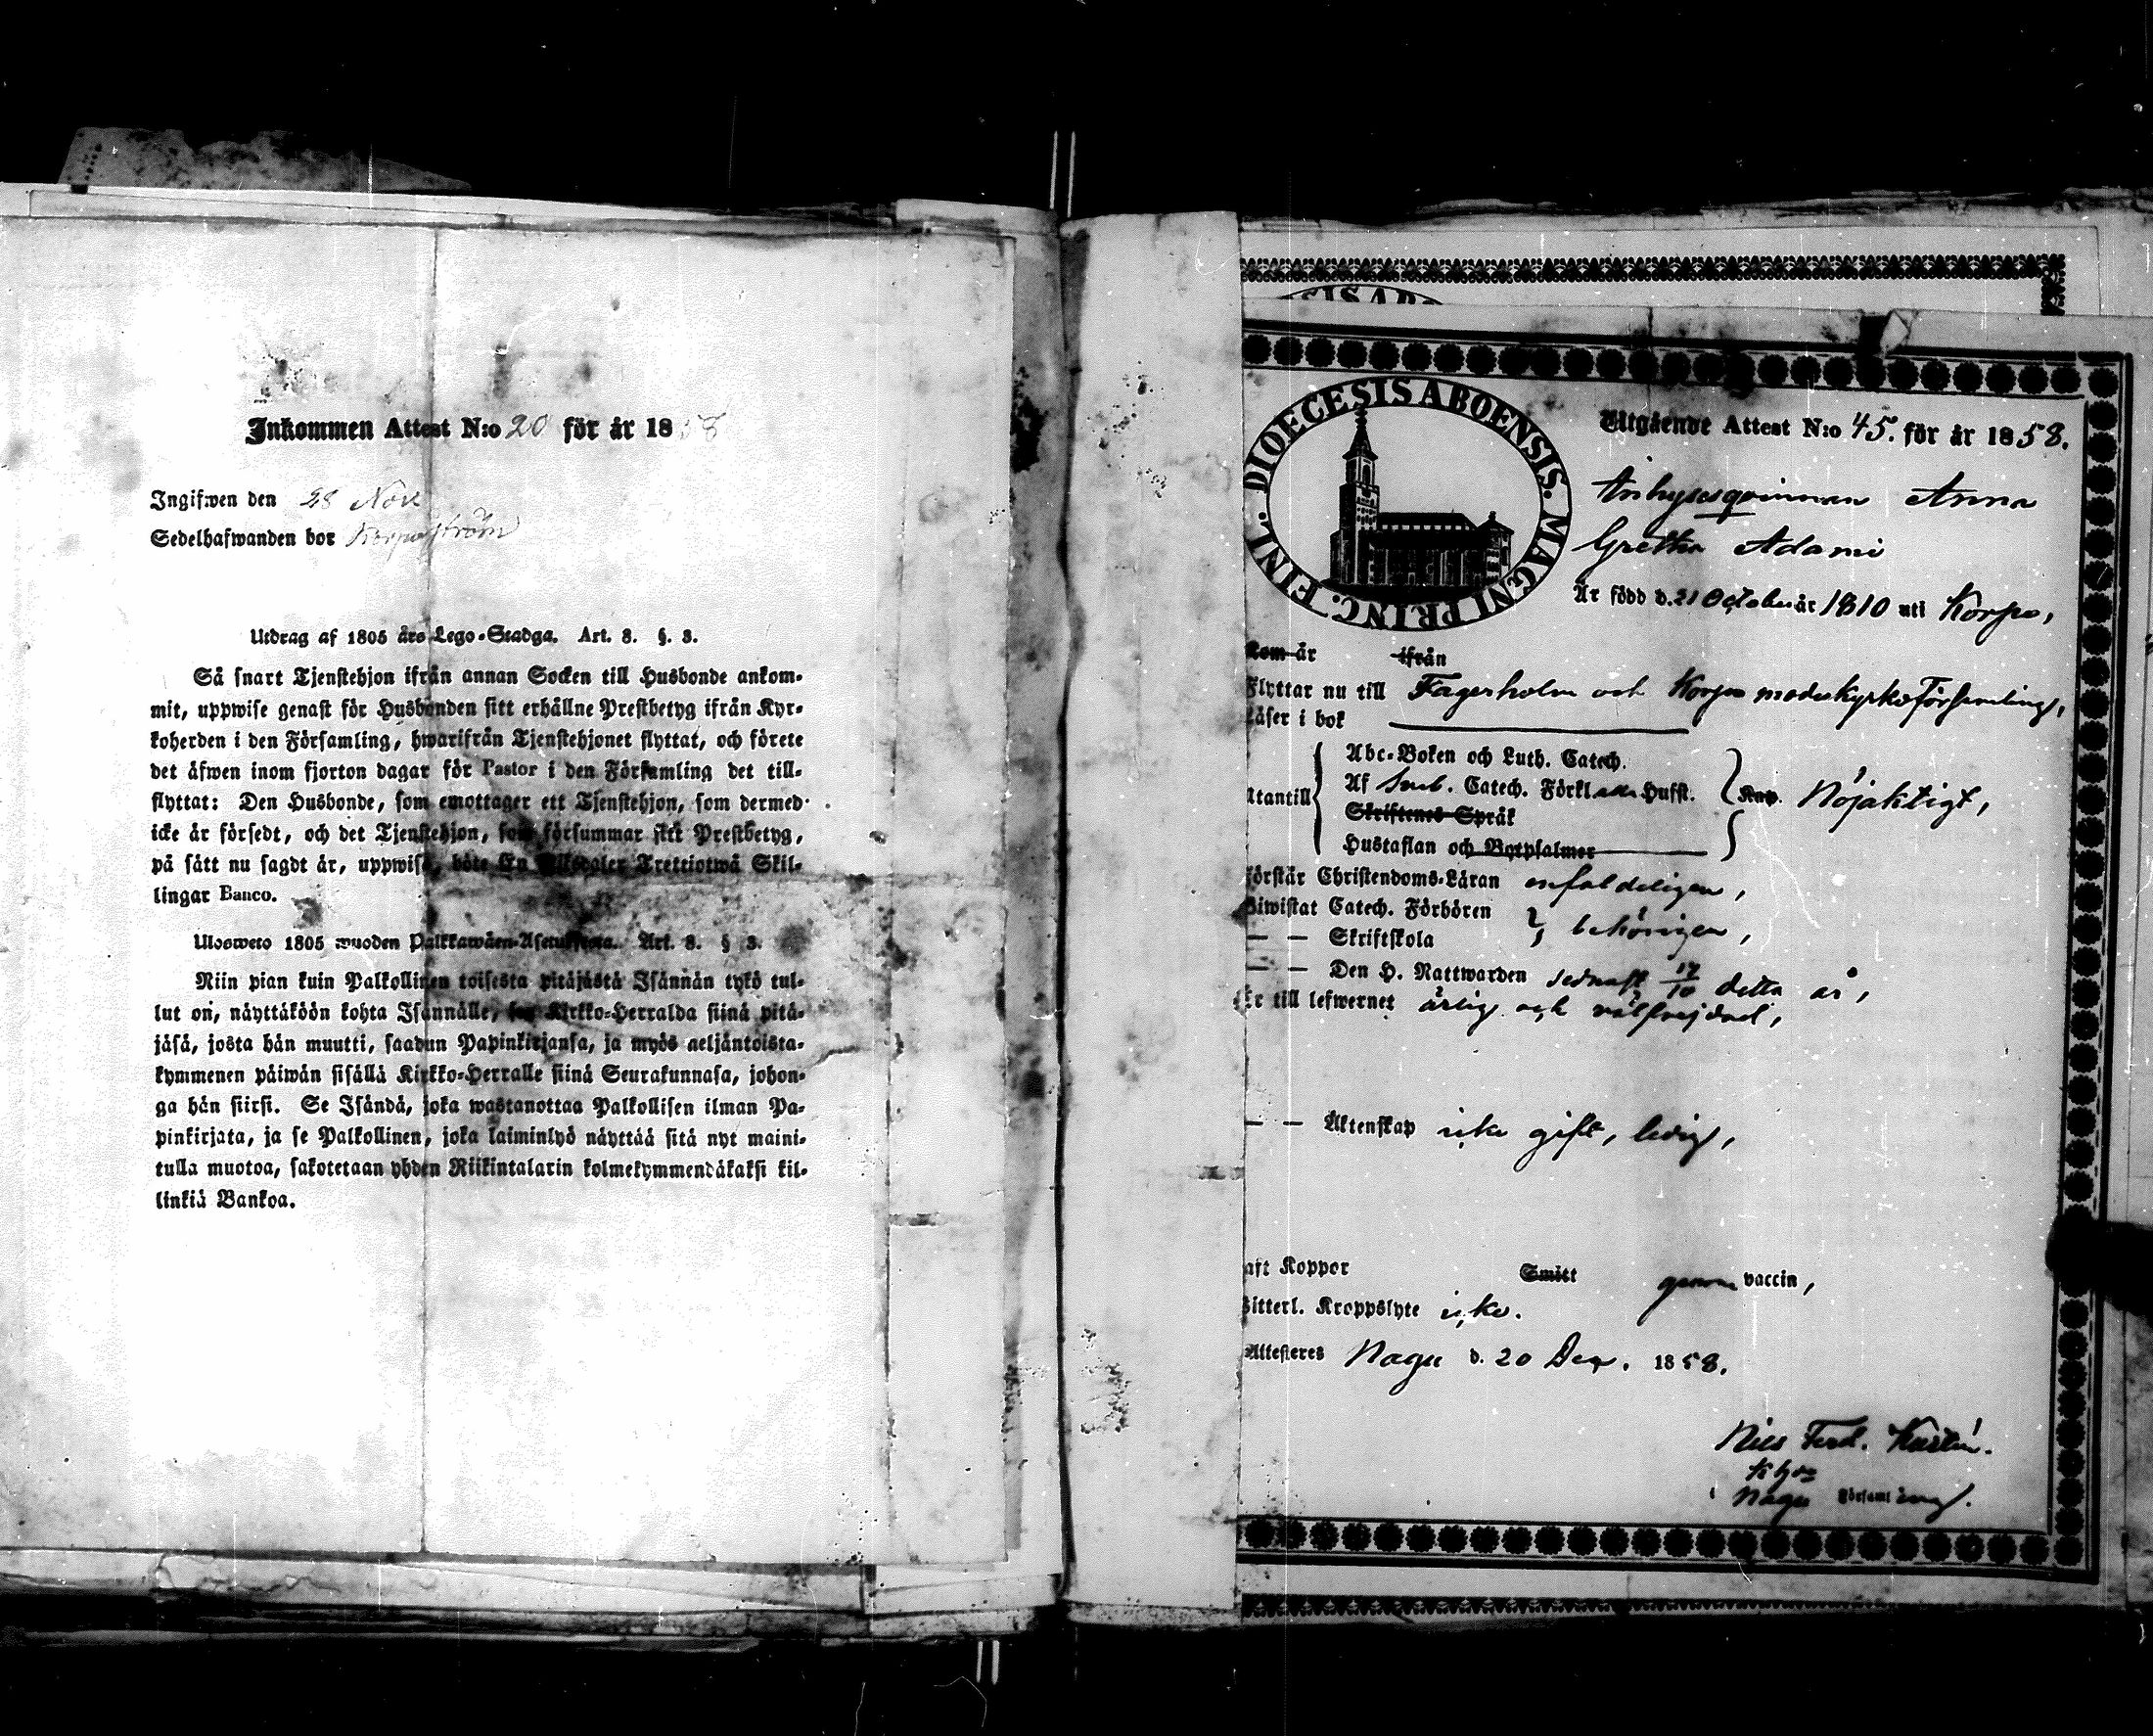 Inkommen Attest N:o 20 för år 1858
Ingifwen den 28 Nov
Sedelhafwanden bor Korpoström
Utdrag af 1805 års Lego-Stadga. Art. 8. §. 3.
Så snart Tjenstehjon ifrån annan Socken till Husbonde ankom-
mit, uppwise genast för Husbonden sitt erhållne Prestbetyg ifrån Kyr-
koherden i den Församling, hwarifrån Tjenstehjonet flyttat, och förete
det äfwen inom fjorton dagar för Pastor i den Församling det till-
flyttat: Den Husbonde, som emottager ett Tjenstehjon, som dermed
icke är försedt, och det Tjenstehjon, som försummar sitt Prestbetyg,
på sätt nu sagdt är, uppwisa, böte En Riksdaler Trettiotwå Skil-
lingar Banco.
Ulosweto 1805 wuoden Palkkawäen-Asetuksesta. Art. 8. § 3.
Niin pian kuin Palkollinen toisesta pitäjästä Isännän tykö tul-
lut on, näyttäköön kohta Isännälle, sen Kirkko-Herralda siinä pitä-
jäsä, josta hän muutti, saadun Papinkirjansa, ja myös neljäntoista-
kymmenen päiwän sisällä Kirkko-Herralle siinä Seurakunnasa, johon-
ga hän siirsi. Se Isändä, joka wastanottaa Palkollisen ilman Pa-
pinkirjata, ja se Palkollinen, joka laiminlyö näyttää sitä nyt maini-
tulla muotoa, sakotetaan yhden Riikintalarin kolmekymmendäkaksi kil-
linkiä Bankoa.
DIOECESIS ABOENSIS. MAGNI PRINC. FINL.
Utgående Attest N:o 45. för år 1858.
Inhysesqvinnan Anna
Gretha Adami
Är född d. 21 October år 1810 uti Korpo,
Kom år ifrån
Flyttar nu till Fagerholm och Korpo moderkyrkoförsamling,
Läser i bok
Abc-Boken och Luth. Catech.
Utantill Af Sveb. Catech. Förkl Hufst. Kap. Nöjaktigt,
Skriftenes Språk
Hustaflan och Botpsalmer
Förstår Christendoms-Läran enfaldeligen,
Biwistat Catech. Förhören
— — Skriftskola behörigen,
— — Den H. Nattwarden sednast 17/10 detta år,
Är till lefwernet ärlig och välfrejdad,
— — Äktenskap icke gift, ledig,
aft Koppor Smitt genom vaccin,
Witterl. Kroppslyte icke.
Attesteres Nagu d. 20 Dec. 1858.
Nils Ferd.
Khde
i Nagu Församling.